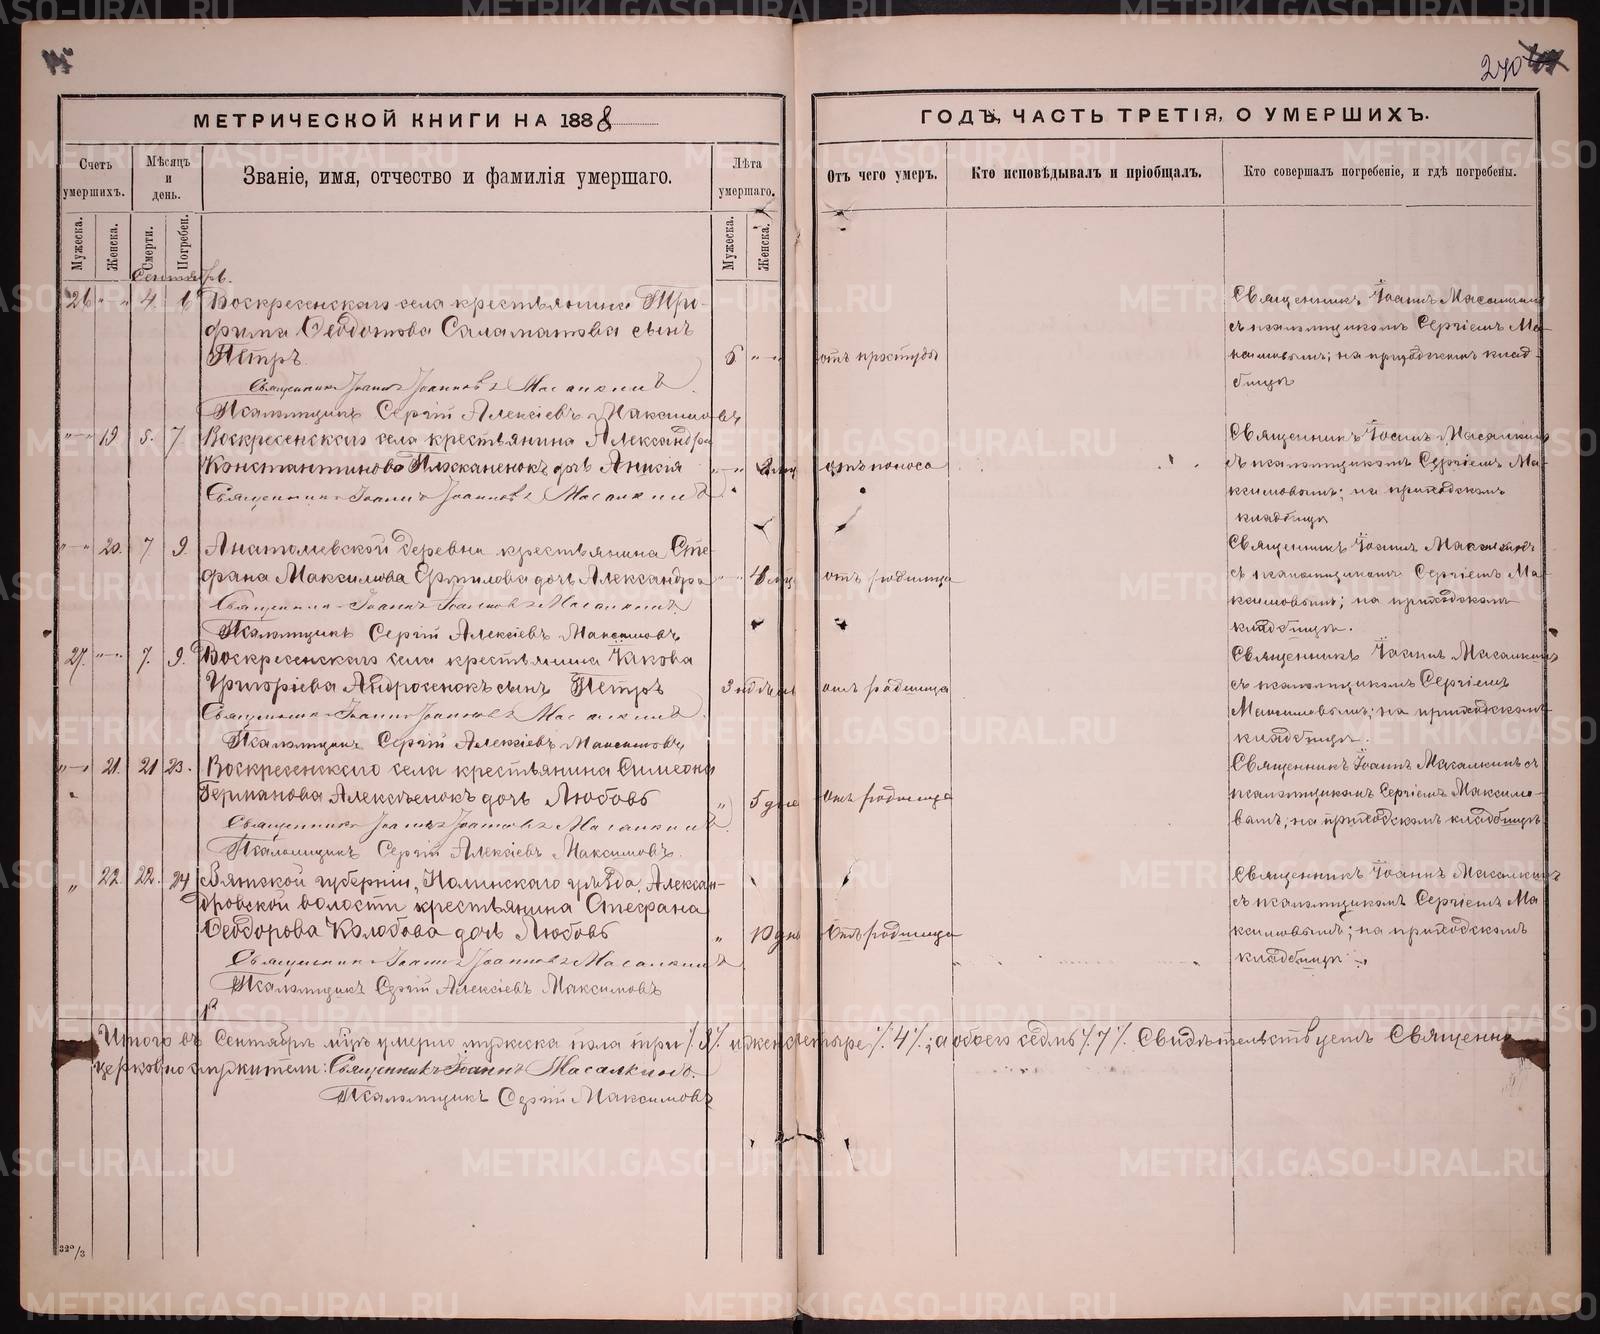 240
МЕТРИЧЕСКОЙ КНИГИ НА 1888
ГОДЪ, ЧАСТЬ ТРЕТІЯ, О УМЕРШИХЪ.
Счетъ умершихъ.
Мѣсяцъ и день.
Званіе, имя, отчество и фамилія умершаго.
Лѣта умершаго.
Отъ чего умеръ.
Кто исповѣдывалъ и пріобщалъ.
Кто совершалъ погребеніе, и гдѣ погребены.
Мужеска.
Женска.
Смерти.
Погребен.
Мужеска.
Женска.
Сентябрь.
26 " " 4 6 Воскресенскаго села крестьянина Тро-
фима Ѳеодотова Саламатова сынъ
Петръ
отъ простуды
Священникъ Іоаннъ Іоанновъ Масалкинъ
Псаломщикъ Сергій Алексіевъ Максимовъ
Священникъ Іоаннъ Масалкинъ
съ псаломщикомъ Сергіемъ Ма-
ксимовымъ; на приходскомъ клад-
бищѣ
" " 19. 5. 7. Воскресенскаго села крестьянина Александра
Константинова дочь Анисія
отъ поноса
Священникъ Іоаннъ Іоанновъ Масалкинъ
Священникъ Іоаннъ Масалкинъ
съ псаломщикомъ Сергіемъ Ма-
ксимовымъ; на приходскомъ
кладбищѣ
" " 20. 7 9. Анатолиевской деревни крестьянина Сте-
фана Максимова Ермилова дочь Александра
отъ родимца
Священникъ Іоаннъ Іоанновъ Масалкинъ
Псаломщикъ Сергій Алексіевъ Максимовъ
Священникъ Іоаннъ Масалкинъ
съ псаломщикомъ Сергіемъ Ма-
ксимовымъ; на приходскомъ
кладбищѣ.
27. " " 7. 9. Воскресенскаго села крестьянина Іакова
Григоріева Андросенокъ сынъ Петръ
3 недѣли
отъ родимца
Священникъ Іоаннъ Іоанновъ Масалкинъ
Псаломщикъ Сергій Алексіевъ Максимовъ
Священникъ Іоаннъ Масалкинъ
съ псаломщикомъ Сергіемъ
Максимовымъ; на приходскомъ
кладбищѣ.
" " 21. 21 23. Воскресенскаго села крестьянина Симеона
Германова Алексѣенокъ дочь Любовь
" 5 дне
отъ родимца
Священникъ Іоаннъ Іоанновъ Масалкинъ
Псаломщикъ Сергій Алексіевъ Максимовъ.
Священникъ Іоаннъ Масалкинъ съ
псаломщикомъ Сергіемъ Максимо-
вымъ; на приходскомъ кладбищѣ
" 22. 22. 24 Вятской губерніи, Нолинскаго уѣзда, Алексан-
дровской волости крестьянина Стефана
Ѳеодорова Колобова дочь Любовь
" 10 днь
Отъ родимца
Священникъ Іоаннъ Іоанновъ Масалкинъ
Псаломщикъ Сергій Алексіевъ Максимовъ
Священникъ Іоаннъ Масалкинъ
съ псаломщикомъ Сергіемъ Ма
ксимовымъ; на приходскомъ
кладбищѣ.
Итого въ Сентябрѣ м-цѣ умерло мужеска пола три /.3/. и женск четыре /.4/.; а обоего седмь /.7/. Свидѣтельствуемъ Священно
церковнослужители: Священникъ Іоаннъ Масалкинъ.
Псаломщикъ Сергій Максимовъ
32º/3
METRIKI.GASO-URAL.RU